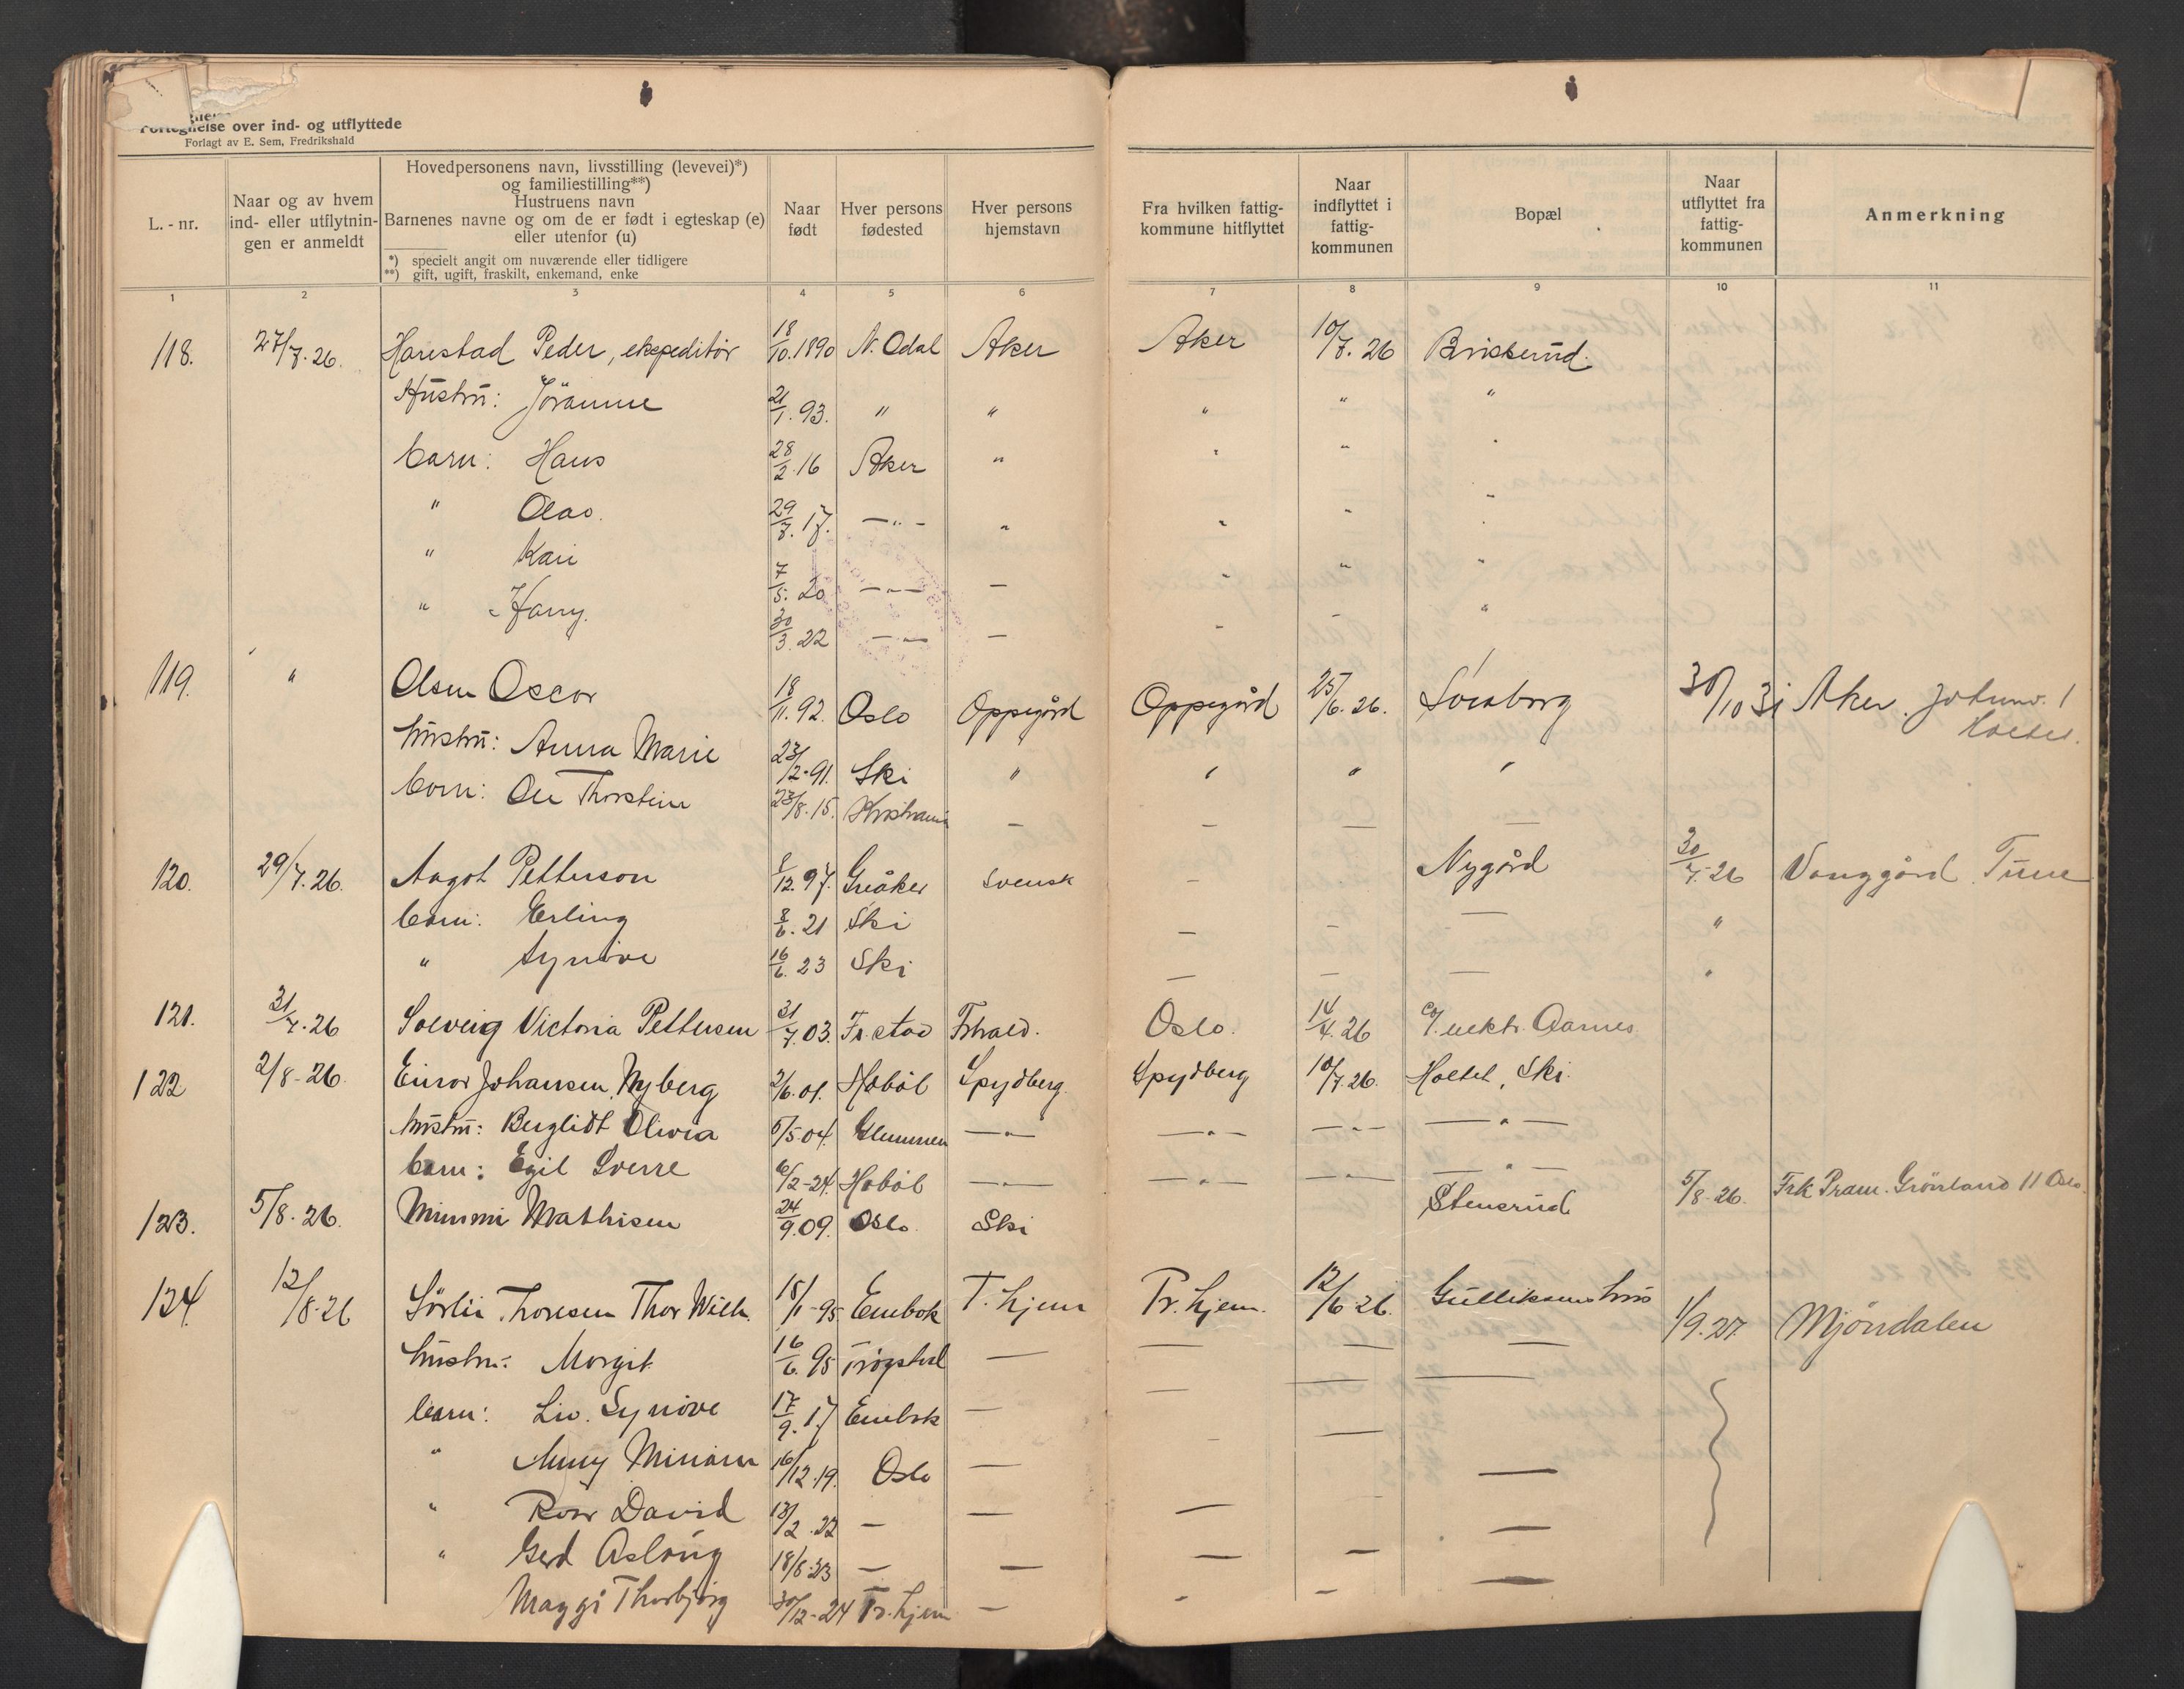 Fortegnelse over ind- og utflyttede
Forlagt av E. Sem, Fredrikshald
L. - nr. Naar og av hvem ind- eller utflytningen er anmeldt Hovedpersonens navn, livsstilling (levevei)*) og familiestilling**) Hustruens navn Barnenes navne og om de er født i egteskap (e) eller utenfor (u) Naar født Hver persons fødested Hver persons hjemstavn Fra hvilken fattigkommune hitflyttet Naar indflyttet i fattigkommunen Bopæl Naar utflyttet fra fattigkommunen Anmerkning
*) specielt angit om nuværende eller tidligere
**) gift, ugift, fraskilt, enkemand, enke
1 2 3 4 5 6 7 8 9 10 11
118. 27/7.26. Harestad Peder, ekspeditör 18/10.1890 N. Odal Aker Aker 10/7.26
Hustru: Jöranne 21/1.93. " " " " "
barn: Hans 28/2.16 Aker " " "
" Olav. 29/7.17. —"— " " "
" Kari 7/5.20 —"— — " " "
" Harry. 30/3.22 —"— — " – "
119. " Olsen Oscar 18/11.92. Oslo Oppegård Oppegård 25/6.26. Solborg 30/10 31 Aker
hustru: Anna Marie 23/12.91. Ski " " " "
barn: Ole Thorstein 23/8.15. Kristiania — — — —
120. 29/7.26. Aagot Petterson 8/12.97. Greåker Svensk — Nygård 30/7.26 Vanggård Tune
barn: Erling 8/6.21 Ski — — — "
" Synöve 16/6.23 Ski — — — "
121. 31/7.26 Solveig Victoria Pettersen 31/7.03. Fr.stad Frhald. Oslo. 14/4.26 Aarnes
122 2/8-26. Einar Johansen Nyberg 2/6.01. Hobøl Spydberg. Spydberg 10/7.26. Holtet, Ski.
hustru: Berglidt Olivia 5/5 04. Glemmen —"— —"— —"— —"—
barn: Egil Sverre 6/2-24. Hobøl —"— —"— —"— —"—
123. 5/8.26. Mimmi Mathisen 24/9.09. Oslo. Ski Stensrud 5/8-26. Frk Pram. Grönland 11 Oslo.
124. 12/8-26 Sörlie Thoresen Thor Wilh. 15/1-95 Enebak T. hjem Tr. hjem. 12/6 26. Gulliksens hus 1/9.27. Mjöndalen
hustru: Margit 16/6.95 Trögstad — — — —
barn: Liv. Synöve 17/9.17 Enebak — — — —
" Anny Miriam 16/12.19. Oslo — – — —
" Roar David 13/2.22 — — — —
" Gerd Aslaug 18/8-23 — — — — —
Maggi Thorbjörg 30/12-24 Tr. hjem — - –